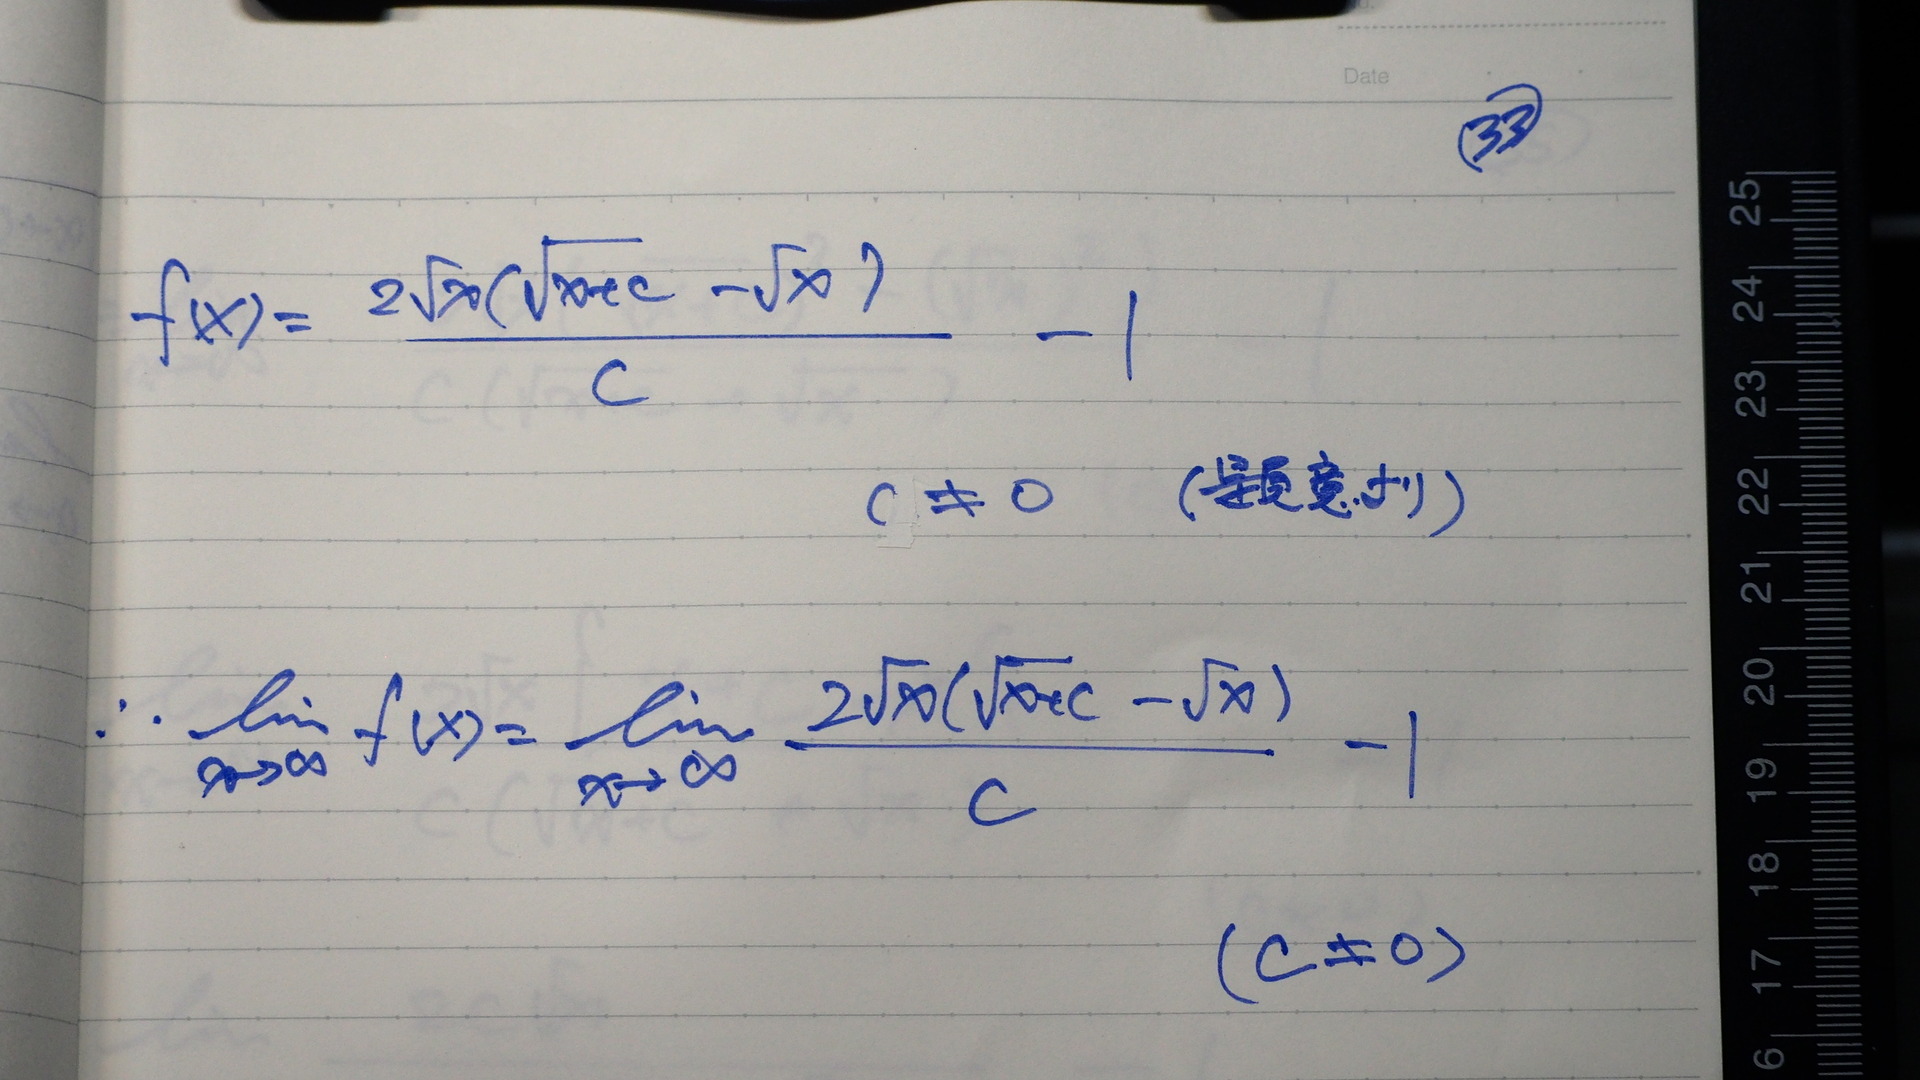 Date
(33)
f(x) = 2√x(√x+c - √x) / c - 1
c ≠ 0 (題意より)
∴ lim x→∞ f(x) = lim x→∞ 2√x(√x+c - √x) / c - 1
(c ≠ 0)
25
24
23
22
21
20
19
18
17
6